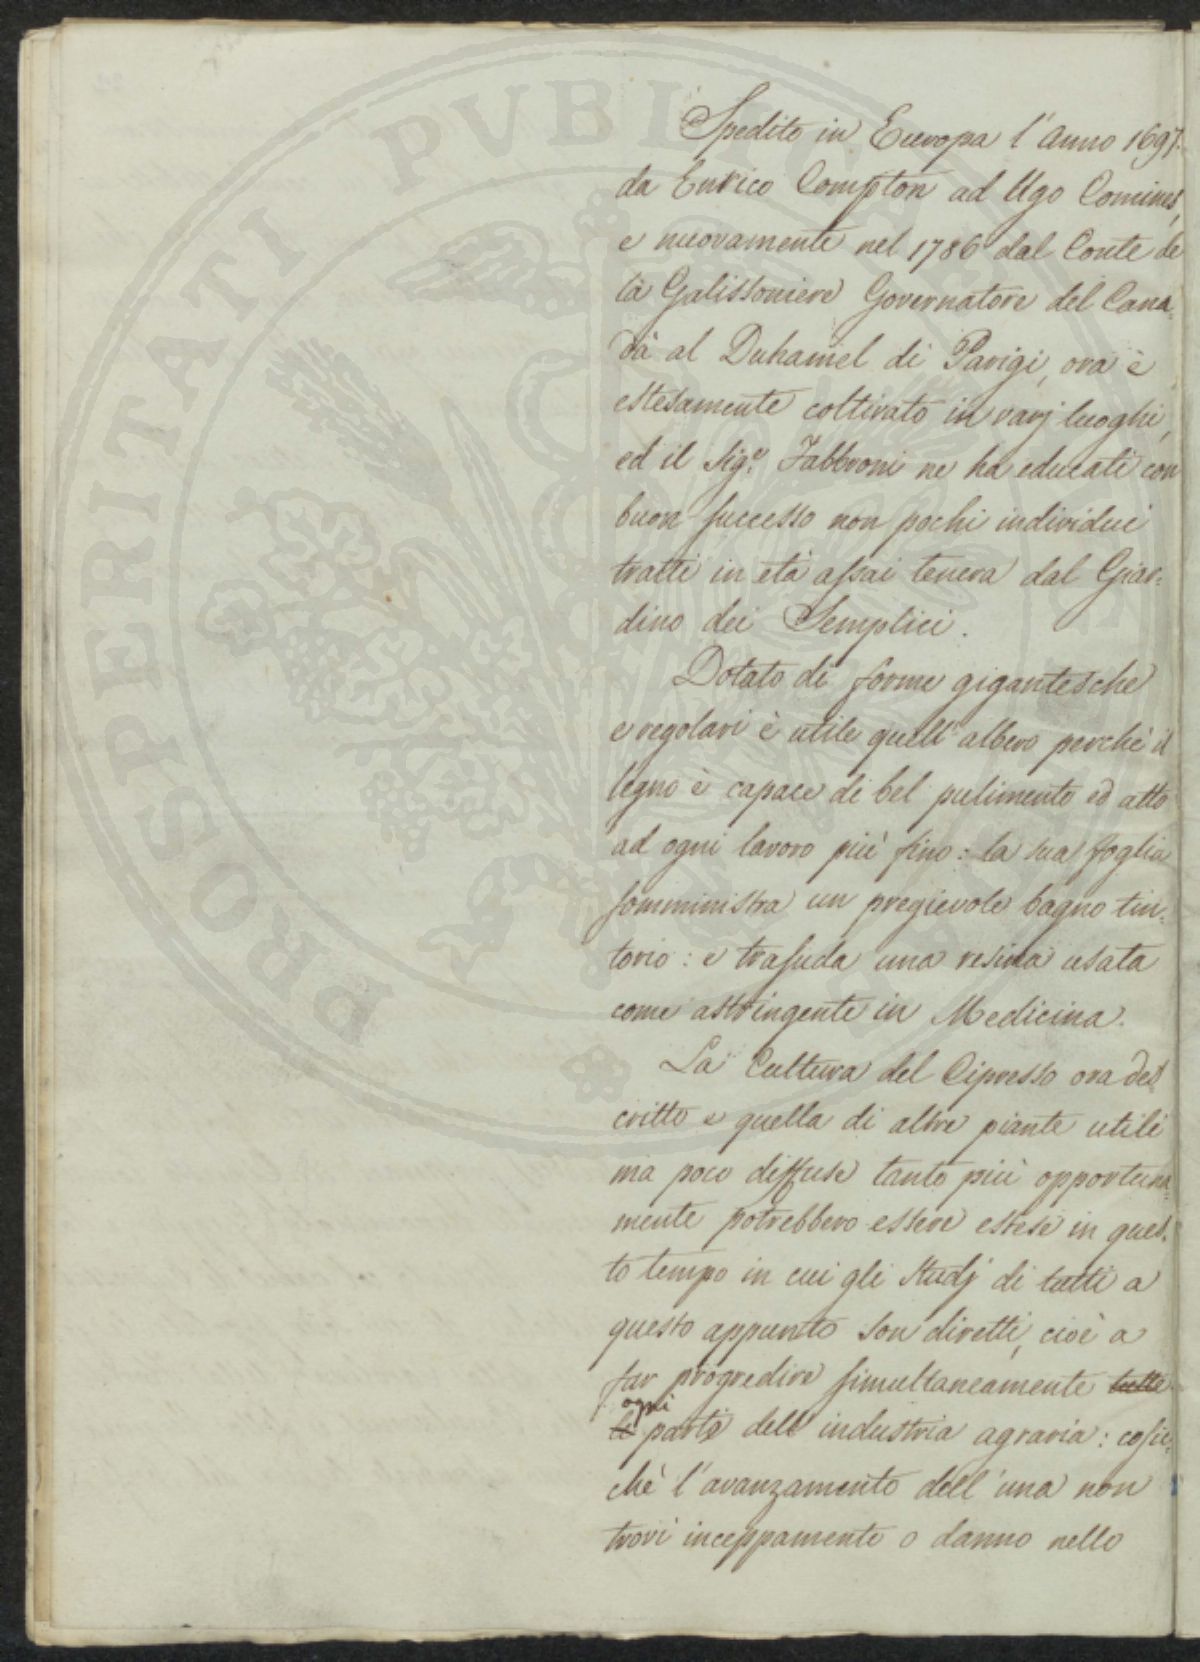 Spedito in Europa l'Anno 1697.
da Enrico Compton ad Ugo Comines,
e nuovamente nel 1786 dal Conte de
la Galissoniere Governatore del Cana-
dà al Duhamel di Parigi, ora è
estesamente coltivato in varj luoghi,
ed il Sig.e Fabbroni ne ha educati con
buon successo non pochi individui
tratti in età assai tenera dal Giar-
dino dei Semplici.
Dotato di forme gigantesche
e regolari è utile quell'albero perchè il
legno è capace di bel pulimento ed atto
ad ogni lavoro più fino: la sua foglia
somministra un pregievole bagno tin-
torio: e trasuda una resina usata
come astringente in Medicina.
La Cultura del Cipresso ora des-
critto e quella di altre piante utili
ma poco diffuse tanto più opportuna-
mente potrebbero essere estese in ques-
to tempo in cui gli Studj di tutti a
questo appunto son diretti, cioè a
far progredire simultaneamente tutte
ogni
le parte dell'industria agraria: cosic-
chè l'avanzamento dell'una non
trovi inceppamento o danno nello
PROSPERITATI PVBLICAE